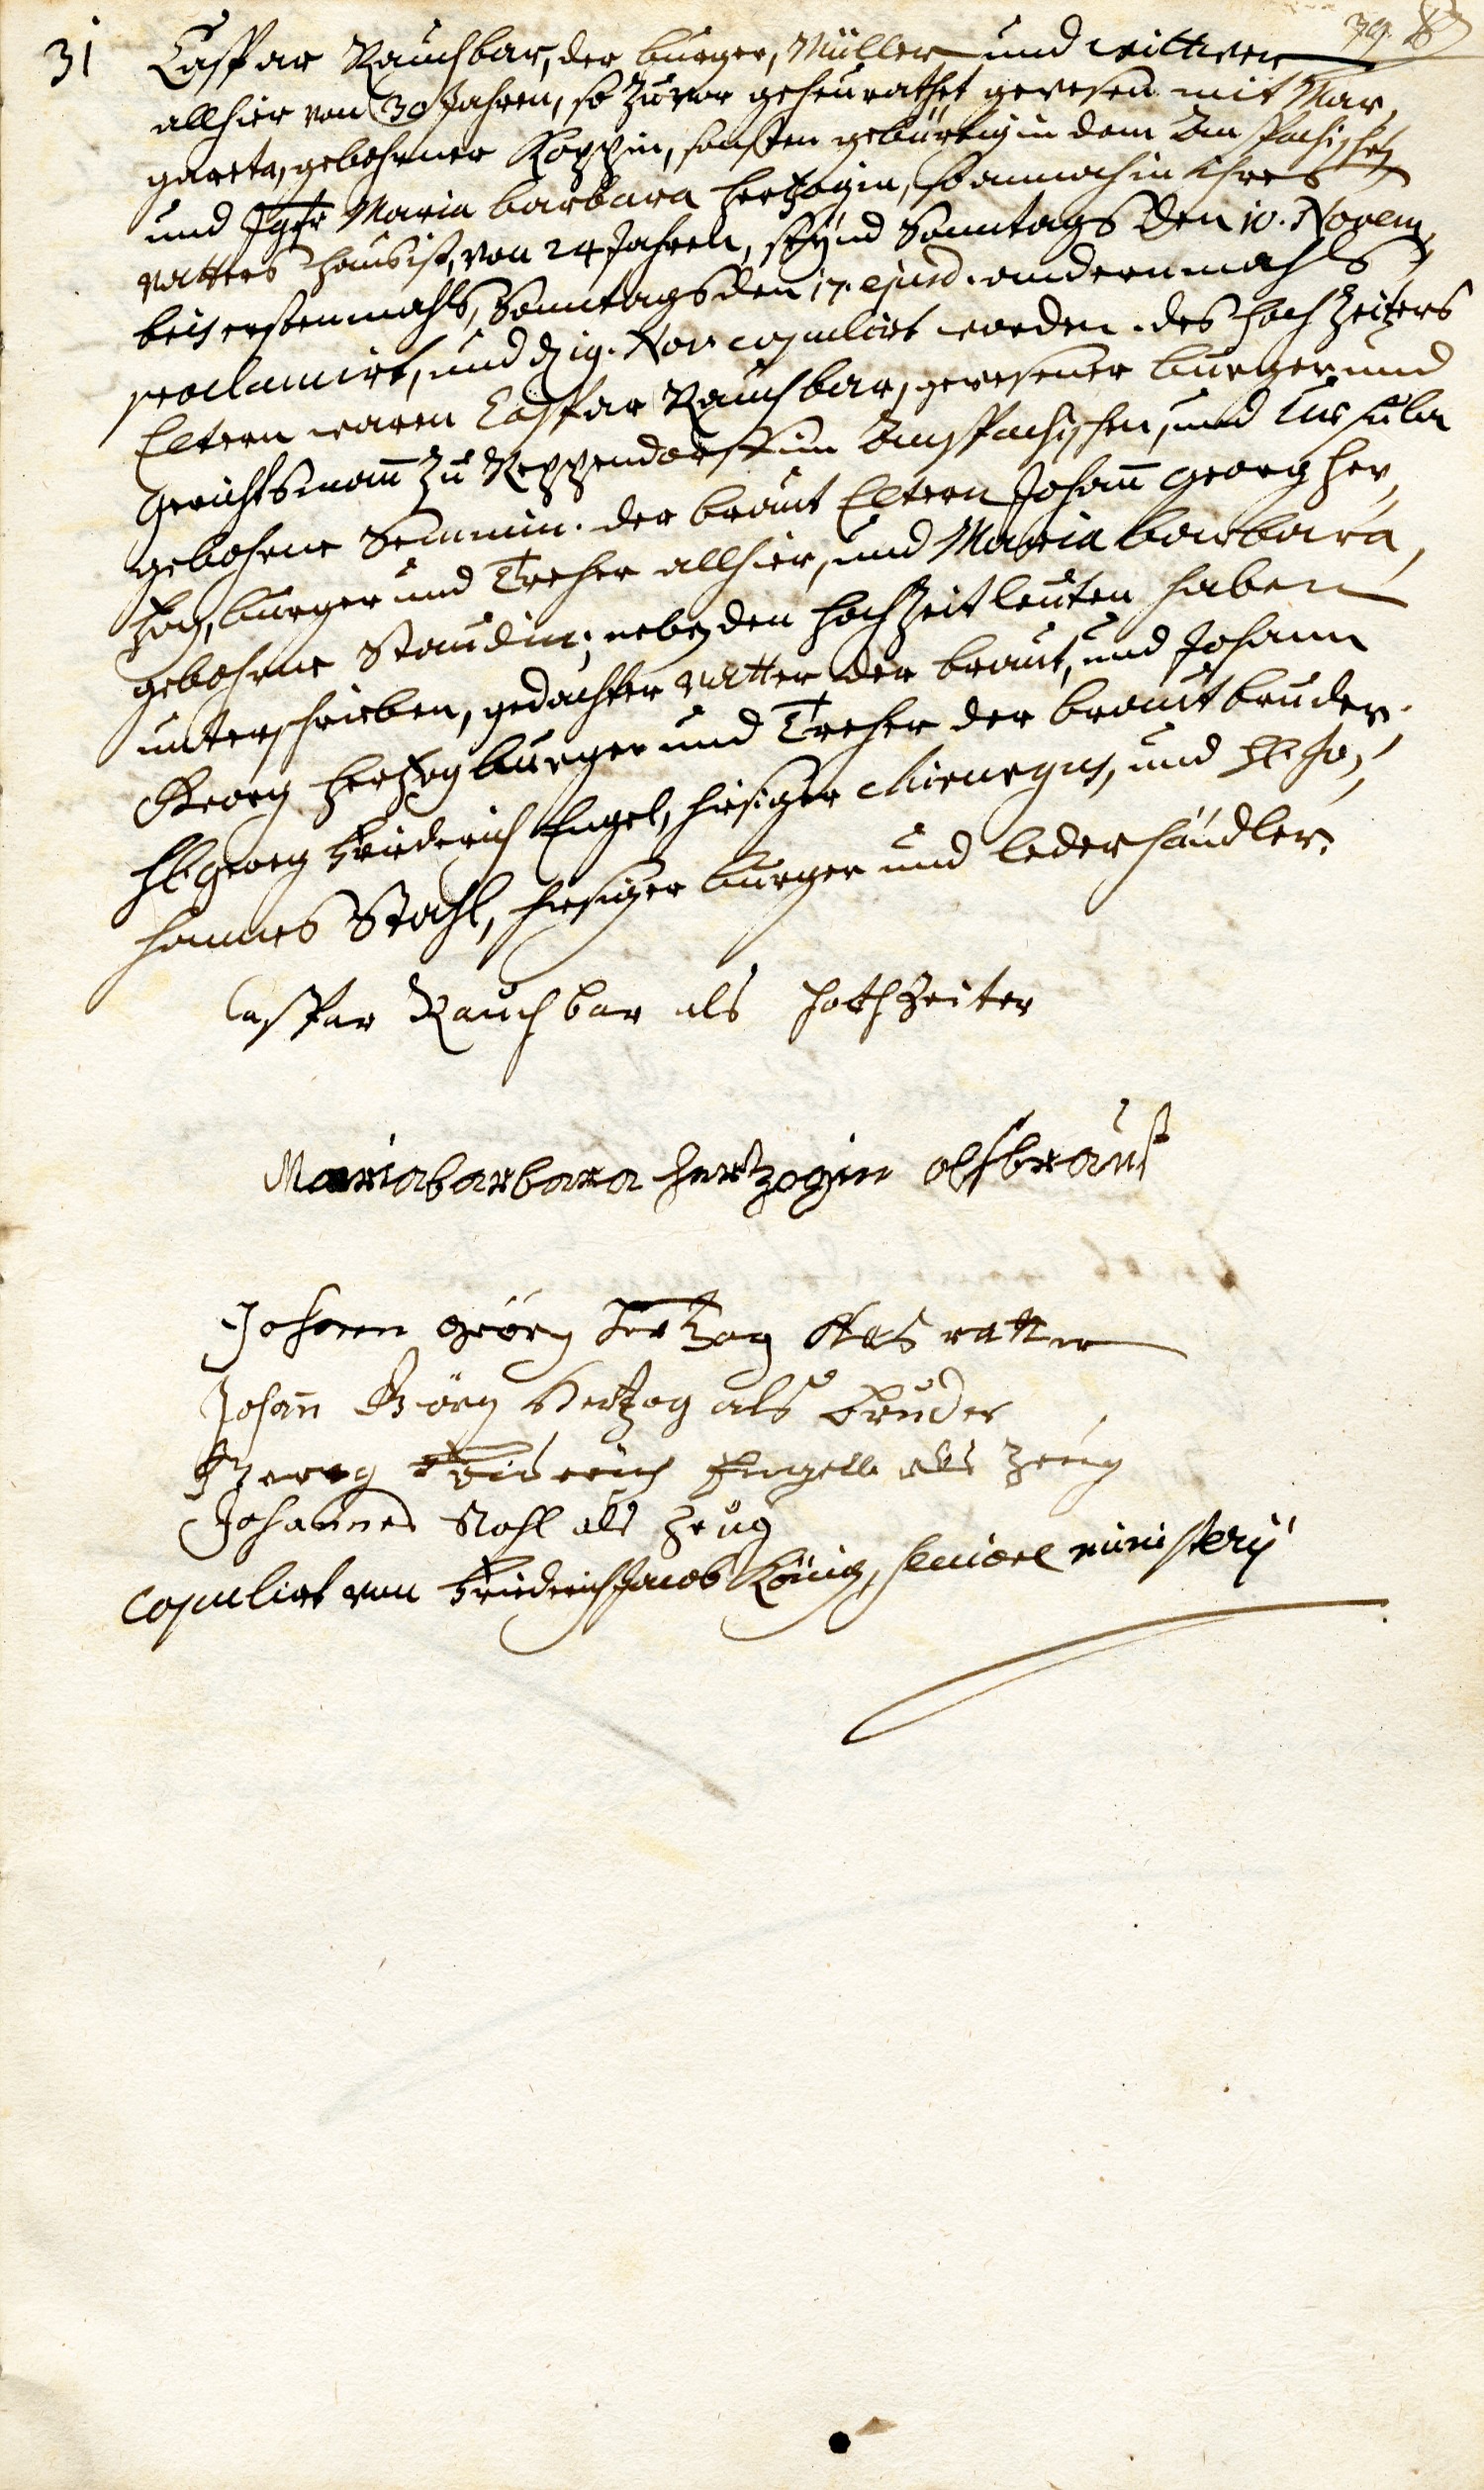 39.
31 Caspar Rauchbar, der burger, Müller und wittwer
allhier von 30 Jahren, so zuvor geheurathet gewesen mit Mar,
gareta, gebohrner Koppin, sonsten gebürtig in dem Anspachischen
und Jgfr Maria barbara Hertzogin, so annoch in ihres
vatters haus ist, von 24 Jahren, seynd Sonntags den 10. Novem,
bris erstenmahls, Sonntags den 17. ejusd. andernmahls
proclamirt, und d 19. Nov. copulirt worden. des hochzeiters
Eltern waren Caspar Rauchbar, gewesener burger und
Gerichtsmañ zu Reppendorff im Anspachischen, und Ursula
gebohrne Semmin. der braut Eltern Johañ Georg Her,
tzog, burger und Dreher allhier, und Maria barbara,
gebohrne Staudin; neben den hochzeitleuten haben
unterschrieben, gedachter vatter der braut, und Johann
Georg Hertzog burger und Dreher der braut bruder,
H. Georg Friederich Engel, hiesiger chirurgus, und H. Jo,
hannes Stahl, hiesiger burger und lederhändler.
Caspar Rauchbar als hochzeiter
Mariabarbara hertzogin alsbraut
Johann Geörg Hertzog als vatter
Johañ Görg Hertzog als bruder
Georg Friderich Engell als zeug
Johannes Stahl als zeug
copulirt von Friederich Jacob König, seniore ministerij